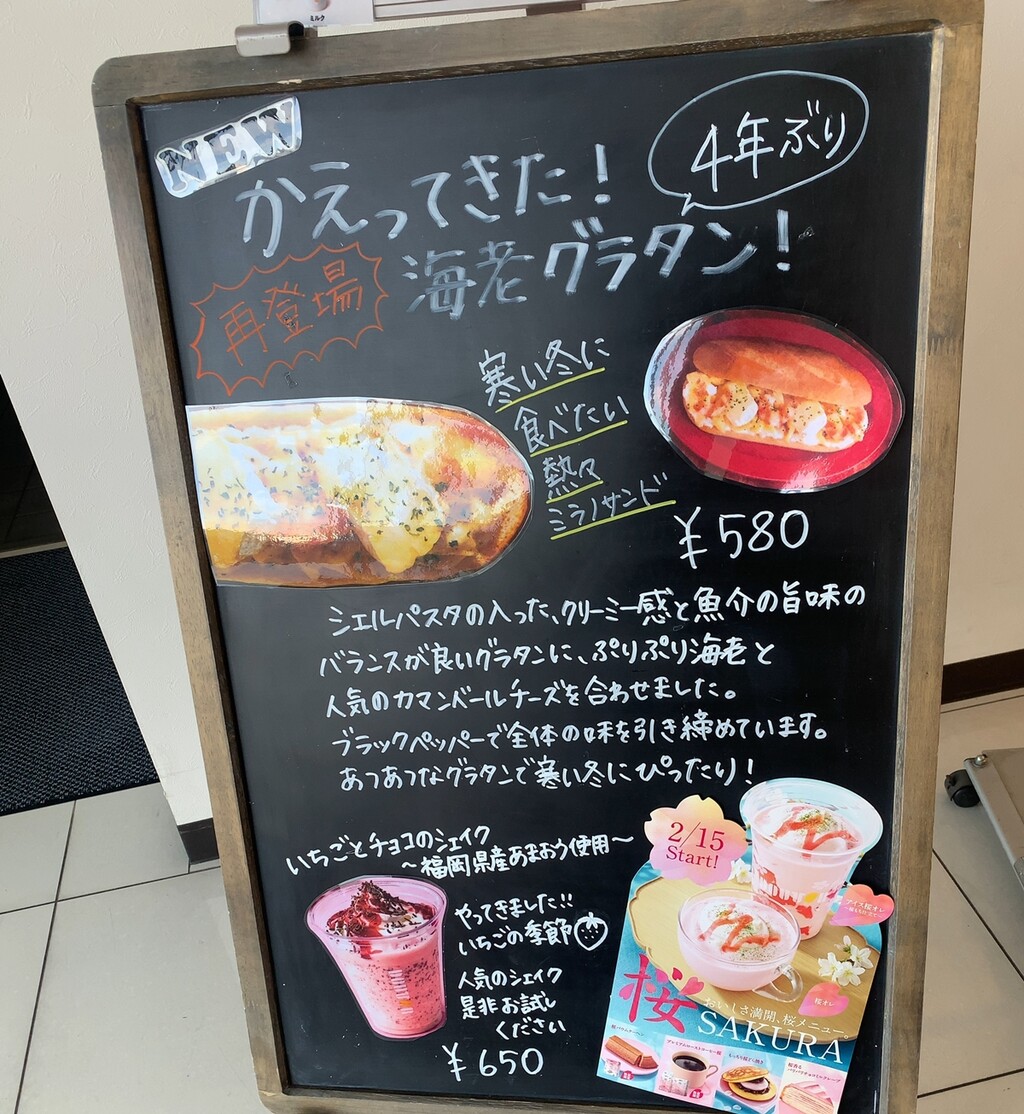 ミルク
NEW
4年ぶり
かえってきた!
再登場
海老グラタン!
寒い冬に
食べたい
熱々
ミラノサンド
¥580
シェルパスタの入った、クリーミー感と魚介の旨味の
バランスが良いグラタンに、ぷりぷり海老と
人気のカマンベールチーズを合わせました。
ブラックペッパーで全体の味を引き締めています。
あつあつなグラタンで寒い冬にぴったり!
いちごとチョコのシェイク
~福岡県産あまおう使用~
やってきました!!
いちごの季節
人気のシェイク
是非お試し
ください
¥650
2/15
Start!
アイス桜オレ
桜オレ
桜
おいしさ満開、桜メニュー。
SAKURA